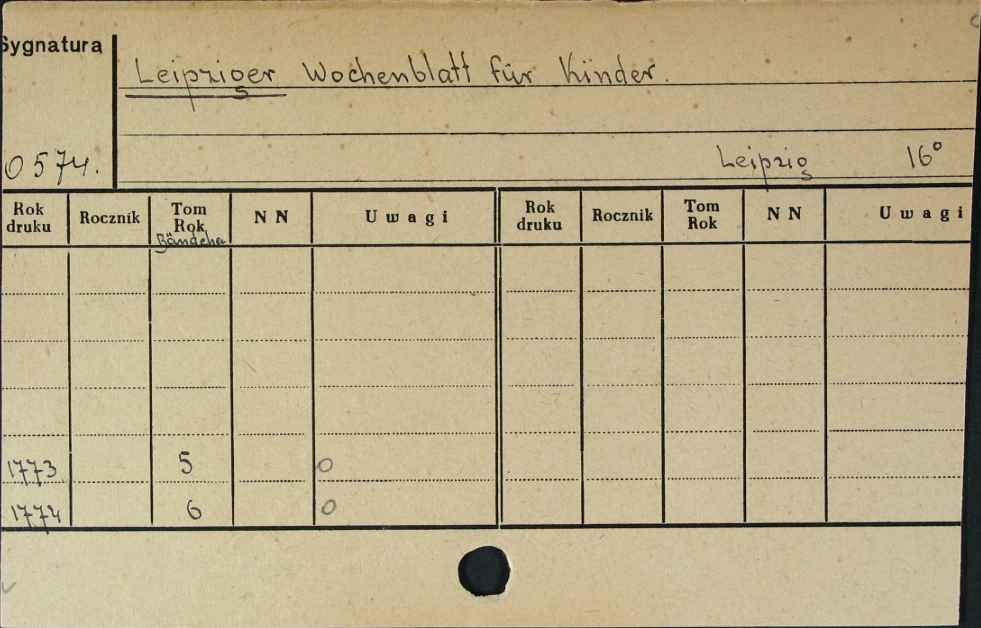 Sygnatura
Leipziger Wochenblatt für Kinder.
0574.
Leipzig 16°
Rok druku Rocznik Tom Rok Bändchen N N Uwagi Rok druku Rocznik Tom Rok N N Uwagi
1773 5 0
1774 6 0